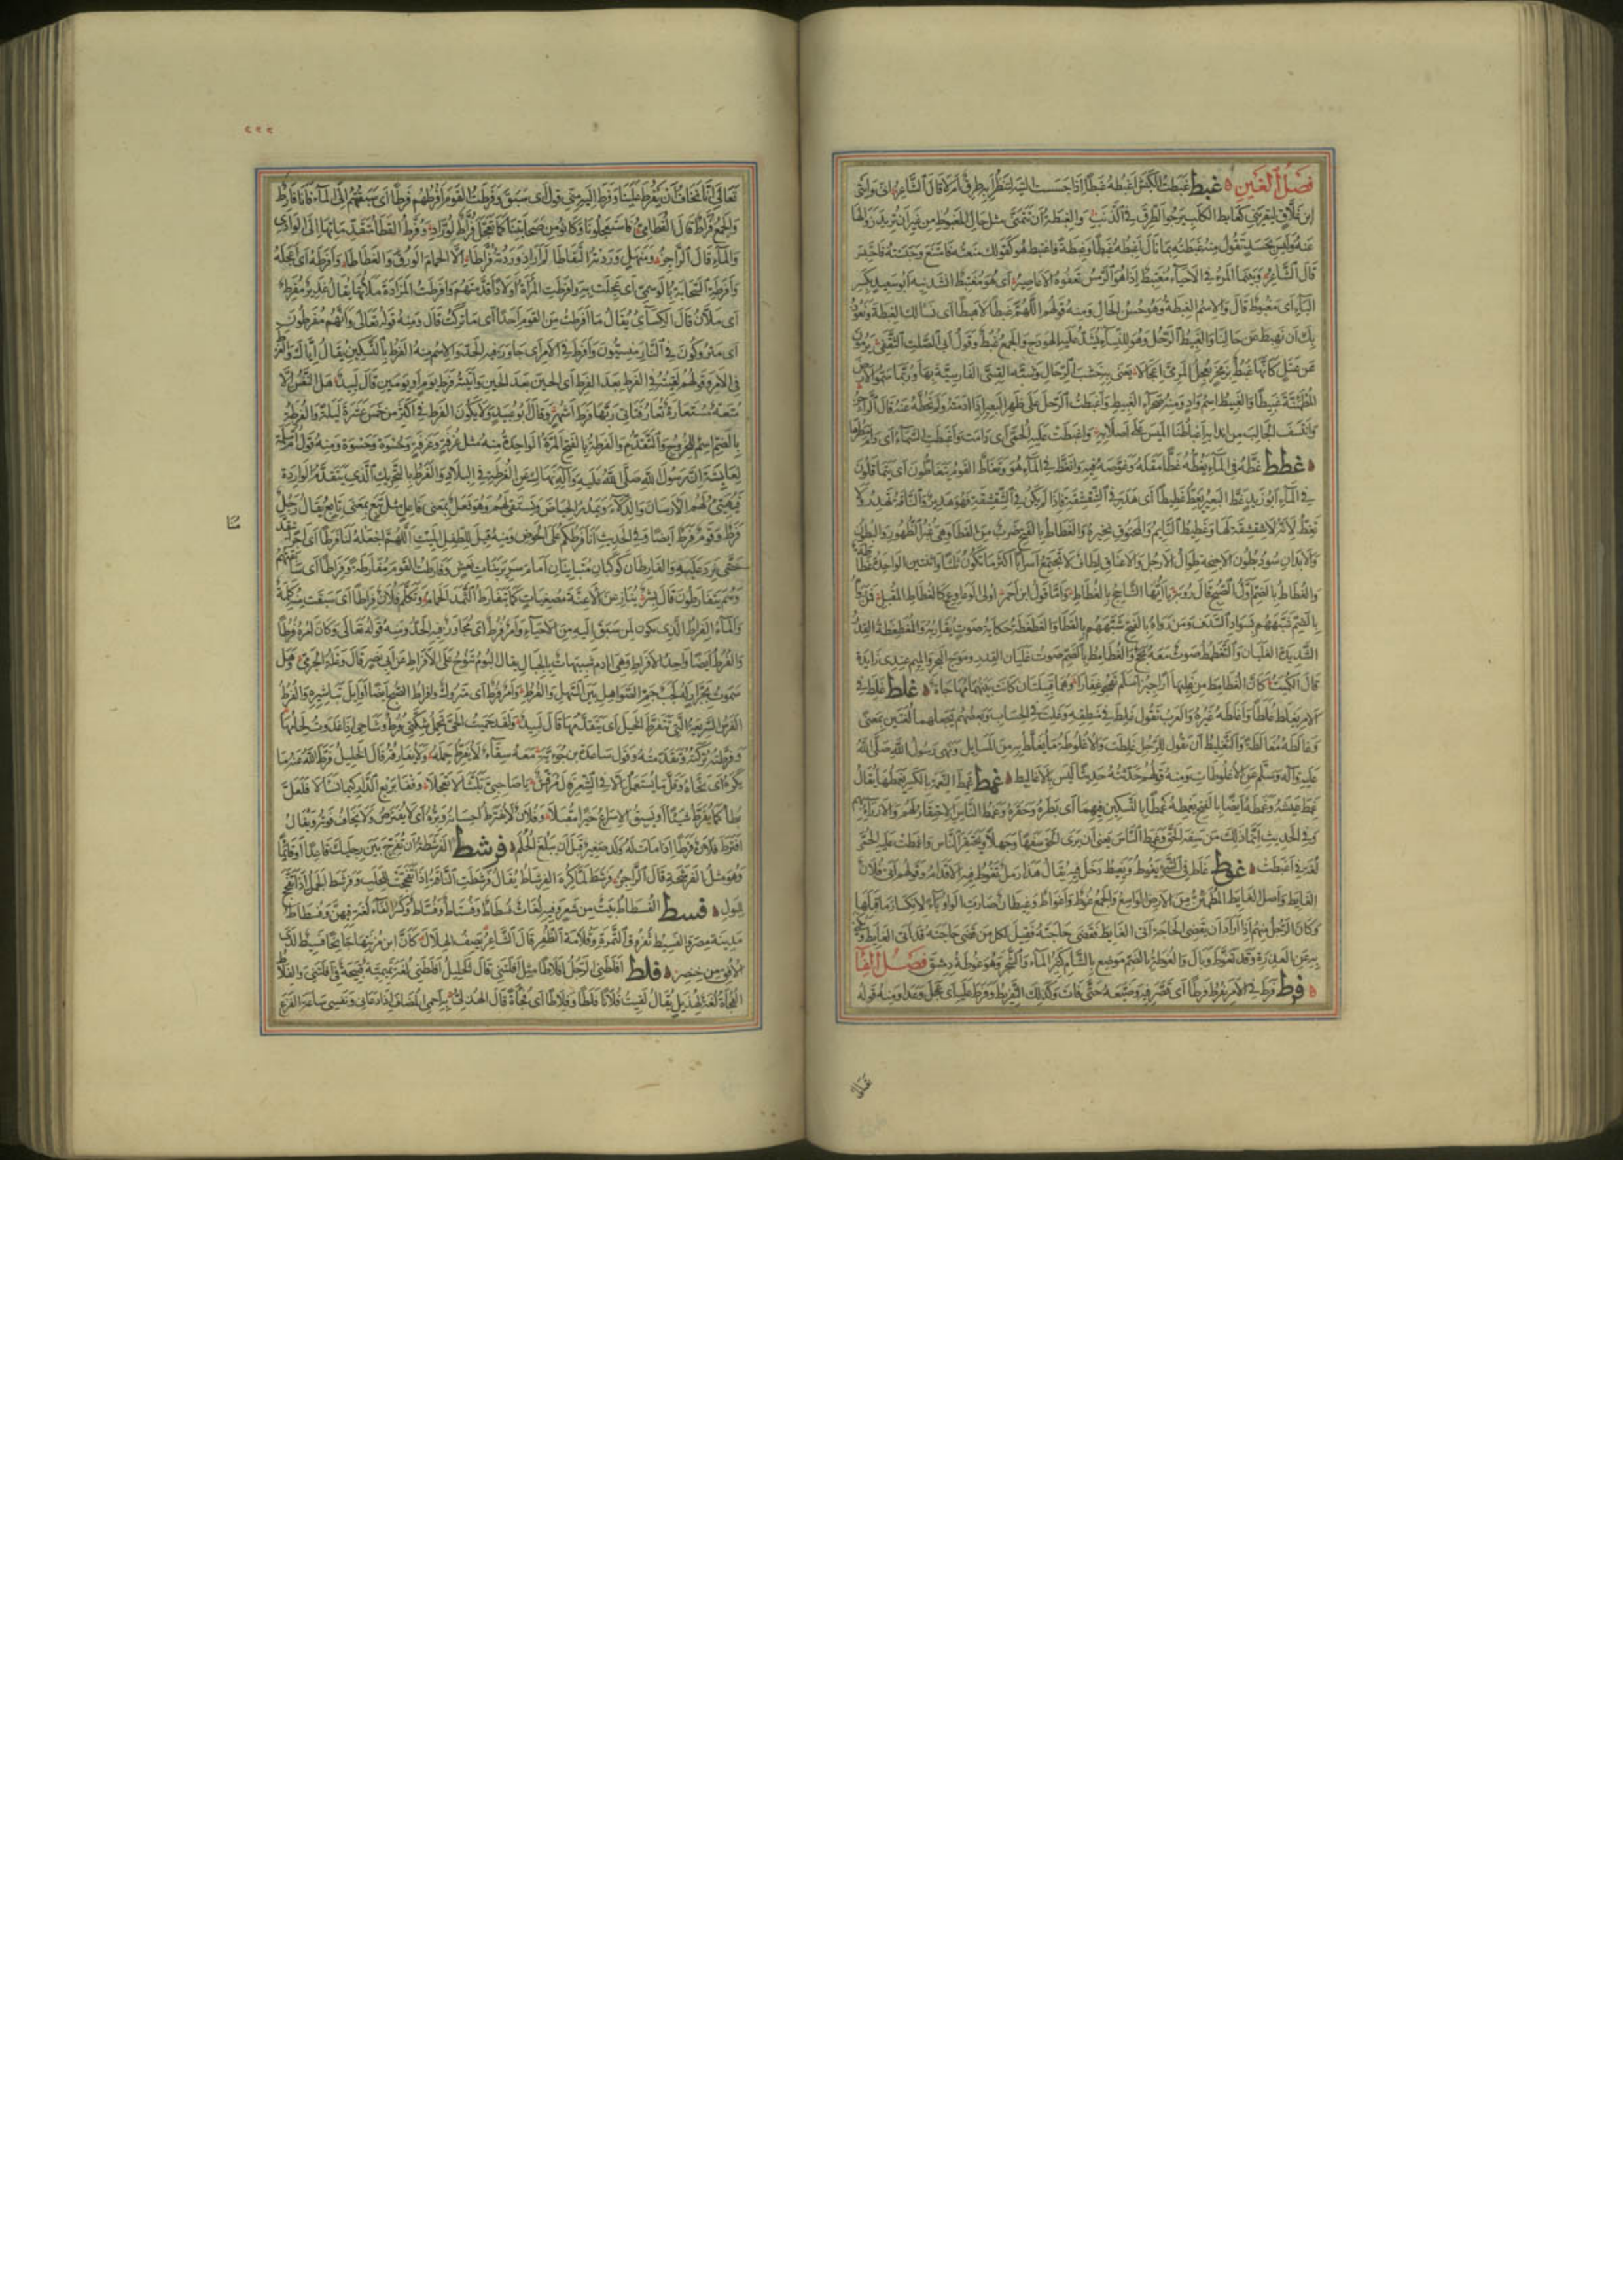 فَصْلُ الغَيْنِ ه غبط غَبَطْتُ الكَبْشَ أَغْبِطُهُ غَبْطًا إذا جَسَسْتَ أليته لتنظر أبه طِرْقٌ أم لا قال الشاعر إنى وأتى
ابن غلّاق ليقرينى كغابط الكلب يرجوا الطرق فى الذنب والغبطة أن تتمنى مثل حال المغبوط من غير أن تريد زوالها
عنه وليس بحسد تقول منه غبطته بما نال أغبطه غبطا وغبطة فاغتبط هو كقولك منعته فامتنع وحبسته فاحتبس
قال الشاعر وبينما المرء فى الأحياء مغتبط إذا هو الرمس تعفوه الأعاصير أى هو مغتبط أنشدنيه أبو سعيد بكسر
الباء أى مغبوط قال والاسم الغبطة وهو حسن الحال ومنه قولهم اللهم غبطا لا هبطا أى نسالك الغبطة ونعوذ
بك أن نهبط عن حالنا والغبيط الرحل وهو للنساء يشد عليه الهودج والجمع غبط وقول أبى الصلت الثقفى يرمون
عن عتل كأنها غبط بزمخر يعجل المرمى إعجالا يعنى به خشب الرحال وشبه القسى الفارسية بها وربما سموا الأرض
المطمئنة غبيطا والغبيط اسم واد ومنه صحراء الغبيط وأغبطت الرحل على ظهر البعير إذا أدمته ولم تحطه عنه قال الراجز
وانتسف الجالب من أندابه إغباطنا الميس على أصلابه وأغبطت عليه الحمى أى دامت وأغبطت السماء أى دام مطرها
ه غطط غطه فى الماء يغطه غطا مقله وغوصه فيه وانغط فى الماء هو وتغاط القوم يتغاطون أى يتماقلون
فى الماء أبو زيد غط البعير يغط غطيطا أى هدر فى الشقشقة فإذا لم يكن فى الشقشقة فهو هدير والناقة تهدر ولا
تغط لأنه لا شقشقة لها وغطيط النائم والمخنوق نخيره والغطاط بالفتح ضرب من القطا وهى غبر الظهور والبطون
والأبدان سود بطون الأجنحة طوال الأرجل والأعناق لطاف لا تجتمع أسرابا أكثر ما تكون ثلثا واثنتين الواحدة غطاطة
والغطاط بالضم أول الصبح قال رؤبة يا أيها الشاحج بالغطاط وأما قول ابن أحمر أولى الوعاوع كالغطاط المقبل فمن رواه
بالضم شبههم بسواد السدف ومن رواه بالفتح شبههم بالقطا والغطغطة حكاية صوت يقاربه والمغطغطة القدر
الشديدة الغليان والتغطمط صوت معه بحح والغطامط بالضم صوت غليان القدر وموج البحر والميم عندى زايدة
قال الكميت كأن الغطامط من غليها أراجيز أسلم تهجو غفارا وهما قبيلتان كانت بينهما مهاجاة ه غلط غلط فى
الأمر يغلط غلطا وأغلطه غيره والعرب تقول غلط فى منطقه وغلت فى الحساب وبعضهم يجعلهما لغتين بمعنى
وغالطه مغالطة والتغليط أن تقول للرجل غلطت والأغلوطة ما يغلط به من المسايل ونهى رسول الله صلى الله
عليه وآله وسلم عن الأغلوطات ومنه قولهم حدثته حديثا ليس بالأغاليط ه غمط غمط النعمة بالكسر يغمطها يقال
غمط عيشه وغمطه أيضا بالفتح يغمطه غمطا بالتسكين فيهما أى بطره وحقره وغمط الناس الاحتقار لهم والازراء بهم
وفى الحديث إنما ذلك من سفه الحق وغمط الناس يعنى أن يرى الحق سفها وجهلا ويحتقر الناس وأغمطت عليه الحمى
لغة فى أغبطت ه غوط غاط فى الشئ يغوط ويغيط دخل فيه يقال هذا رمل تغوط فيه الأقدام وقولهم أتى فلان
الغايط وأصل الغايط المطمئن من الأرض الواسع والجمع غوط وأغواط وغيطان صارت الواو ياء لانكسار ما قبلها
وكان الرجل منهم إذا أراد أن يقضى الحاجة أتى الغايط فقضى حاجته فقيل لكل من قضى حاجته قد أتى الغايط
به عن العذرة وقد تغوط وبال والغوطة بالضم موضع بالشام كثير الماء والشجر وهو غوطة دمشق فصل الفاء
ه فرط فرط فى الأمر يفرط فرطا أى قصر فيه وضيعه حتى فات وكذلك التفريط وفرط عليه أى عجل وعدا ومنه قوله
٢٢٢
تعالى إننا نخاف أن يفرط علينا وفرط إليه منى قول أى سبق وفرطت القوم أفرطهم فرطا أى سبقتهم إلى الماء فأنا فارط
والجمع فراط قال القطامى فاستعجلونا وكانوا من صحابتنا كما تعجل فراط لوراد وفراط القطا متقدماتها إلى الوادى
والماء قال الراجز ومنهل وردته التقاطا لم أر إذ وردته فراطا إلا الحمام الورق والغطاطا وأفرطه أى أعجله
وأفرطت السحابة بالوسمى أى عجلت به وأفرطت المرأة أولادا قدمتهم وأفرطت المزادة ملأتها يقال غدير مفرط
أى ملآن قال الكسائى يقال ما أفرطت من القوم أحدا أى ما تركت قال ومنه قوله تعالى وأنهم مفرطون
أى متروكون فى النار منسيون وأفرط فى الأمر أى جاوز فيه الحد والاسم منه الفرط بالتسكين يقال إياك والفرط
فى الأمر وقولهم لقيته فى الفرط بعد الفرط أى الحين بعد الحين وأتيته فرط يوم أو يومين قال لبيد هل النفس إلا
متعة مستعارة تعار فتأتى ربها فرط أشهر وقال أبو عبيد ولا يكون الفرط فى أكثر من خمس عشرة ليلة والفرطة
بالضم اسم للخروج والتقدم والفرطة بالفتح المرة الواحدة منه مثل غرفة وغرفة وحسوة وحسوة ومنه قول أم سلمة
لعايشة إن رسول الله صلى الله عليه وآله نهاك عن الفرطة فى البلاد والفرط بالتحريك الذى يتقدم الواردة
فيهيئ لهم الأرسان والدلاء ويمدر الحياض ويستقى لهم وهو فعل بمعنى فاعل مثل تبع بمعنى تابع يقال رجل
فرط وقوم فرط أيضا وفى الحديث أنا فرطكم على الحوض ومنه قيل للطفل الميت اللهم اجعله لنا فرطا أى أجرا
حتى نرد عليه والفارطان كوكبان متباينان أمام سرير بنات نعش وفارطت القوم مفارطة وفراطا أى سابقتهم
وهم يتفارطون قال بشر ينازعن الأعنة مصغيات كما يتفارط الثمد الحمام وتكلم فلان فراطا أى سبقت منه كلمة
والماء الفراط الذى يكون لمن سبق إليه من الأحياء وأمر فرط أى مجاوز فيه الحد ومنه قوله تعالى وكان أمره فرطا
والفرط أيضا واحد الأفراط وهى آكام شبيهات بالجبال يقال البوم تنوح على الأفراط عن أبى نصر قال وعلة الجرمى وهل
سموت بجرار له لجب جم الصواهل بين السهل والفرط وأمر فرط أى متروك وأفراط الصباح أيضا أوايل تباشيره والفرط
الفرس السريعة التى تتفرط الخيل أى تتقدمها قال لبيد ولقد حميت الحى تحمل شكتى فرط وشاحى إذ غدوت لجامها
وفرطته تركته وتقدمته وقول ساعدة بن جؤية معه سقاء لا يفرط حمله ولا يغارفه قال الخليل فرط الله عنه ما
يكره أى نحاه وقل ما يستعمل إلا فى الشعر قال مرقش يا صاحبى تلبثا لا تعجلا وقفا بربع الدار كيما تسالا فلعل
بطأكما يفرط سيئا أو يسبق الإسراع خيرا مقبلا وفلان لا يفترط إحسانه وبره أى لا يفترص ولا يخاف فوته ويقال
افترط فلان فرطا إذا مات له ولد صغير قبل أن يبلغ الحلم ه فرشط الفرشطة أن تفرج بين رجليك قاعدا أو قايما
وهو مثل الفرشحة قال الراجز فرشط لما كره الفرشاط يقال فرشطت الناقة إذا تفحجت للحلب وفرشط الجمل إذا تفحج
للبول ه فسط الفسطاط بيت من شعر وفيه لغات فسطاط وفستاط وفساط وكسر الفاء لغة فيهن وفسطاط
مدينة مصر والفسيط ثفروق التمرة وقلامة الظفر قال الشاعر يصف الهلال كأن ابن مزنتها جانحا فسيط لدى
الأفق من خنصر ه فلط أفلطنى الرجل إفلاطا مثل أفلتنى قال الخليل أفلطنى لغة تميمية قبيحة فى أفلتنى والفلاط
الفجأة لغة لهذيل يقال لقيت فلانا فلطا وفلاطا أى فجأة قال الهذلى به أحمى المضاف إذا دعانى ونفسى ساعة الفزع